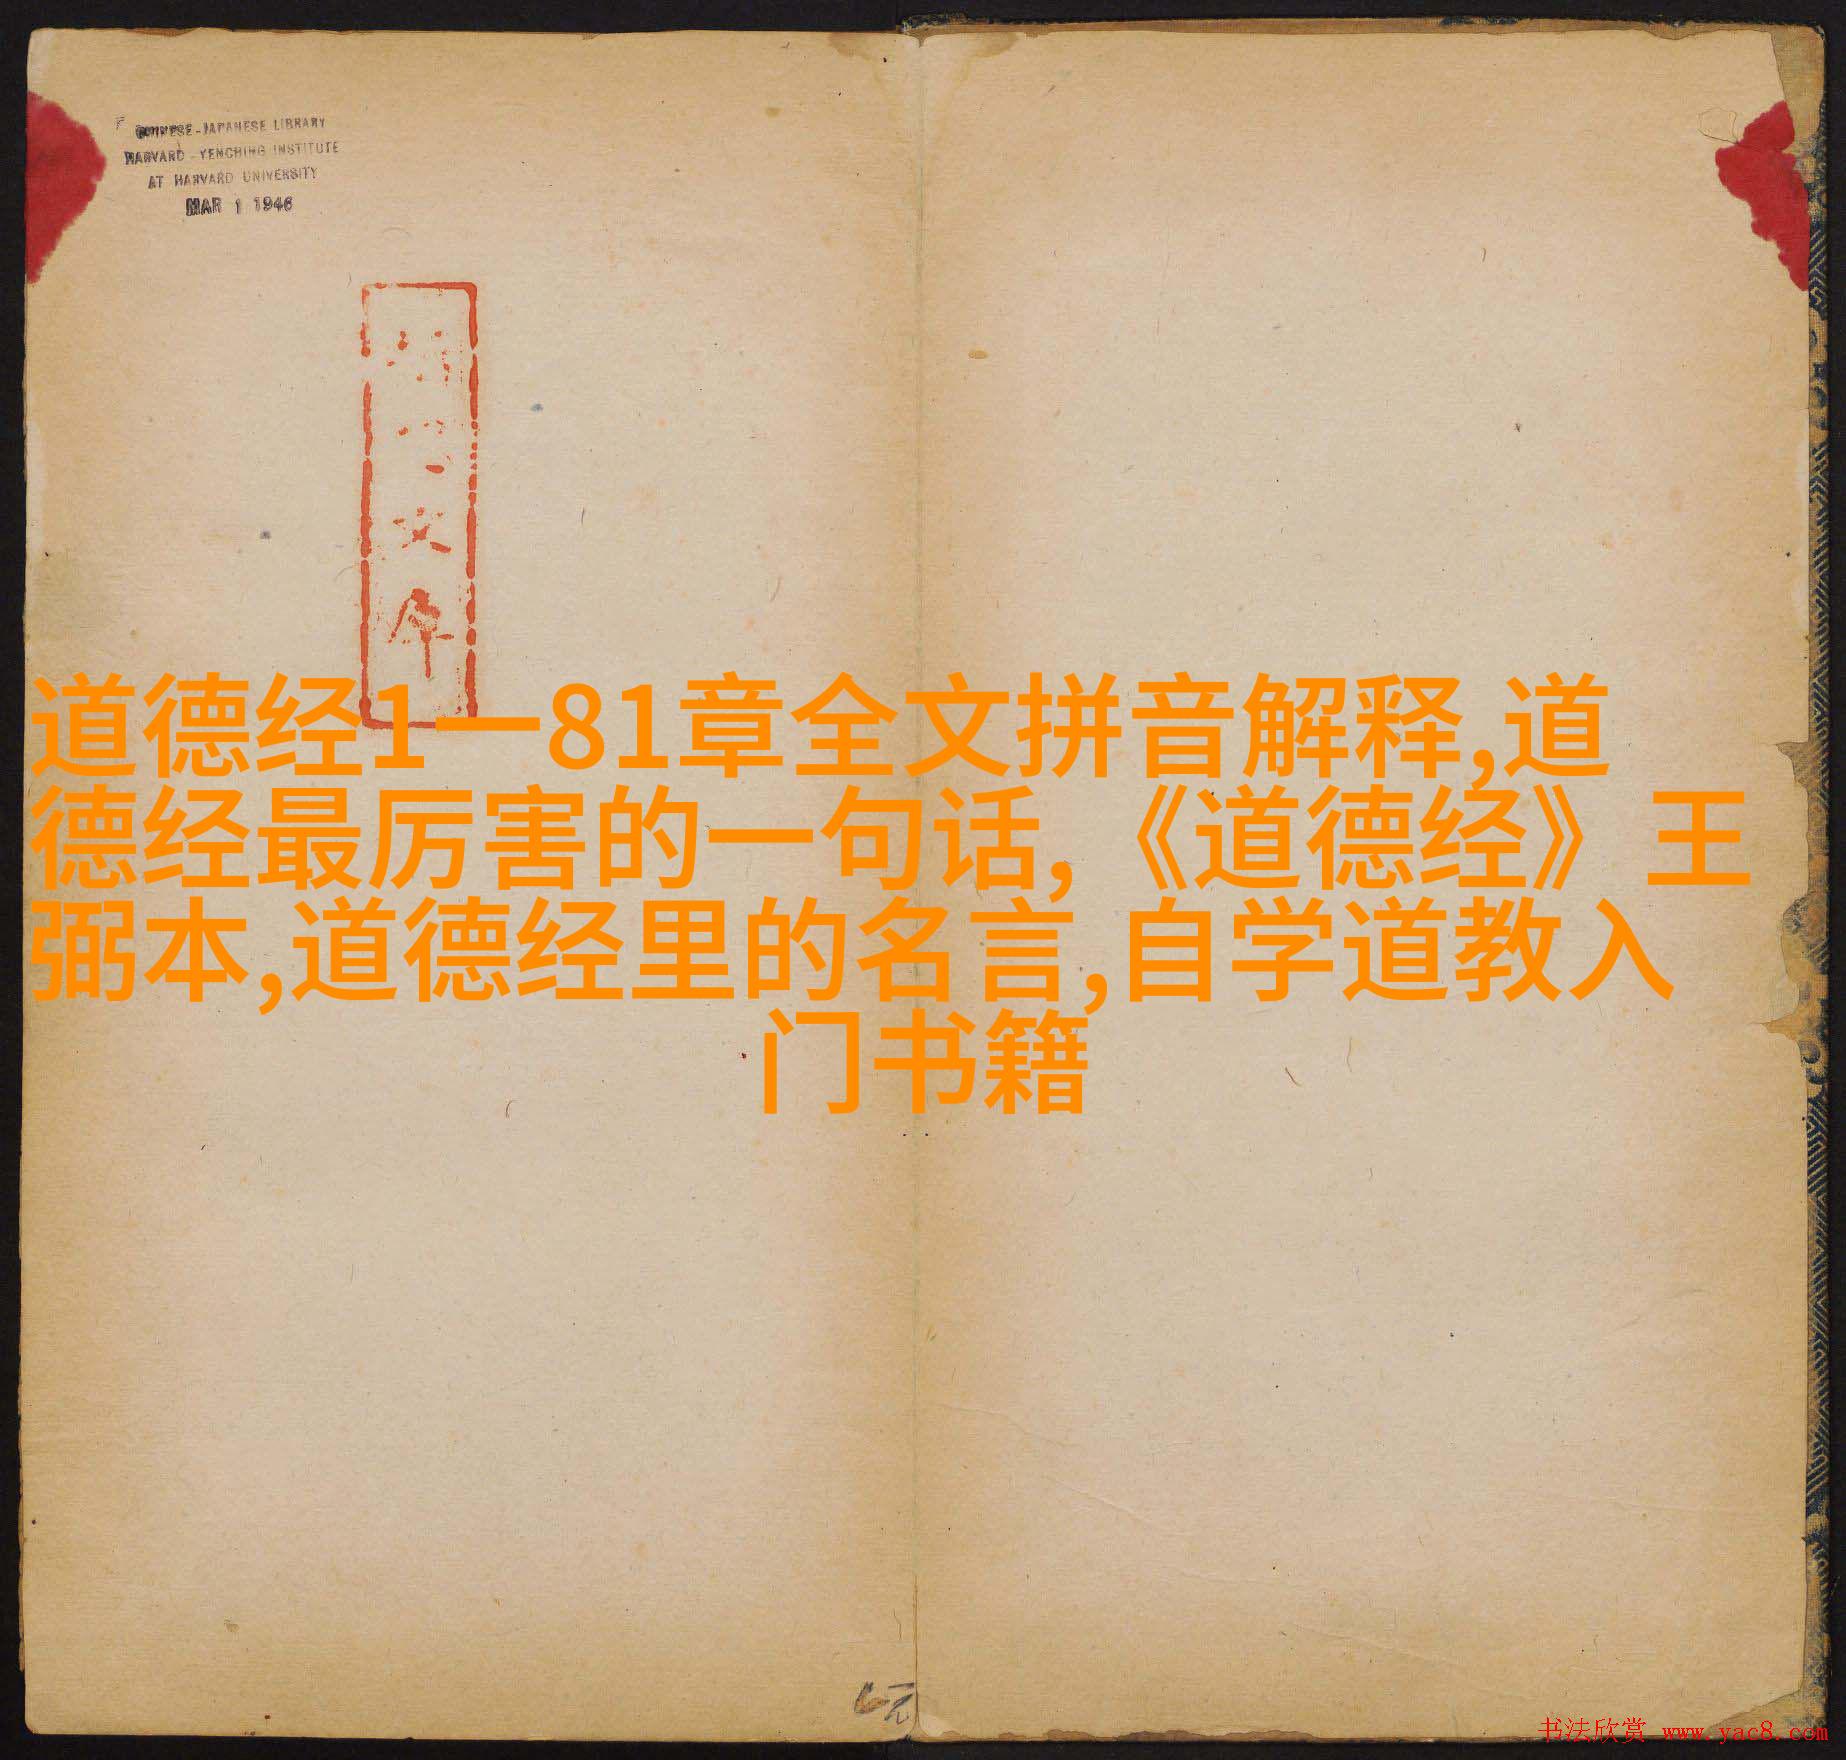 CHINESE-JAPANESE LIBRARY
HARVARD-YENCHING INSTITUTE
AT HARVARD UNIVERSITY
MAR 1 1946
道德经1一81章全文拼音解释,道
德经最厉害的一句话,《道德经》王
弼本,道德经里的名言,自学道教入
门书籍
书法欣赏 www.yac8.com